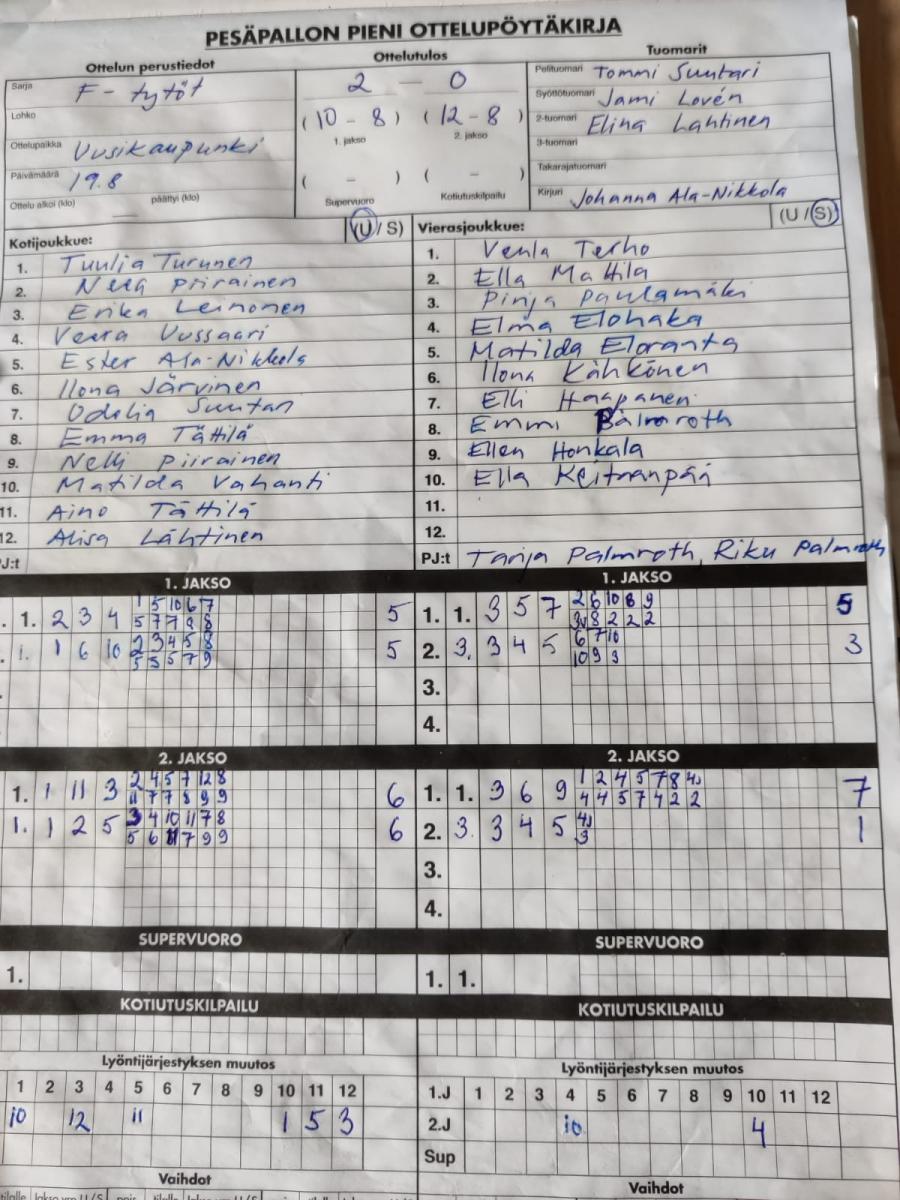 PESÄPALLON PIENI OTTELUPÖYTÄKIRJA
Ottelun perustiedot Ottelutulos Tuomarit
Sarja F - tytöt 2 - 0 Pelituomari Tommi Suutari
Lohko (10 - 8) (12 - 8) Syöttötuomari Jami Lovén
1. jakso 2. jakso 2-tuomari Elina Lahtinen
Ottelupaikka Uusikaupunki 3-tuomari
Päivämäärä 19.8 ( - ) ( - ) Takarajatuomari
Ottelu alkoi (klo) päättyi (klo) Supervuoro Kotiutuskilpailu Kirjuri Johanna Ala-Nikkola
Kotijoukkue: (U / S) Vierasjoukkue: (U / S)
1. Tuulia Turunen 1. Venla Terho
2. Nella Piirainen 2. Ella Mattila
3. Erika Leinonen 3. Pinja Paulamäki
4. Veera Uussaari 4. Elma Elohaka
5. Ester Ala-Nikkola 5. Matilda Eloranta
6. Ilona Järvinen 6. Ilona Kähkönen
7. Odelia Suutari 7. Elli Haapanen
8. Emma Tättilä 8. Emmi Palmroth
9. Nelli Piirainen 9. Ellen Honkala
10. Matilda Vahanti 10. Ella
11. Aino Tättilä 11.
12. Alisa Lähtinen 12.
J:t PJ:t Tarja Palmroth, Riku Palmroth
1. JAKSO 1. JAKSO
1 5 10 6 7 2 6 10 8 9
. 1. 2 3 4 5 1. 1. 3 5 7 5
5 7 7 9 8 8 2 2 2
2 3 4 5 8 6 7 10
. 1. 1 6 10 5 2. 3. 3 4 5 3
5 5 5 7 9 10 9 3
3.
4.
2. JAKSO 2. JAKSO
2 4 5 7 12 8 1 2 4 5 7 8
1. 1 11 3 6 1. 1. 3 6 9 7
11 7 7 8 9 9 4 4 5 7 4 2 2
3 4 10 11 7 8
1. 1 2 5 6 2. 3. 3 4 5 1
5 6 11 7 9 9 3
3.
4.
SUPERVUORO SUPERVUORO
1. 1. 1.
KOTIUTUSKILPAILU KOTIUTUSKILPAILU
Lyöntijärjestyksen muutos Lyöntijärjestyksen muutos
1 2 3 4 5 6 7 8 9 10 11 12 1.J 1 2 3 4 5 6 7 8 9 10 11 12
10 12 11 1 5 3 2.J 10 4
Sup
Vaihdot Vaihdot